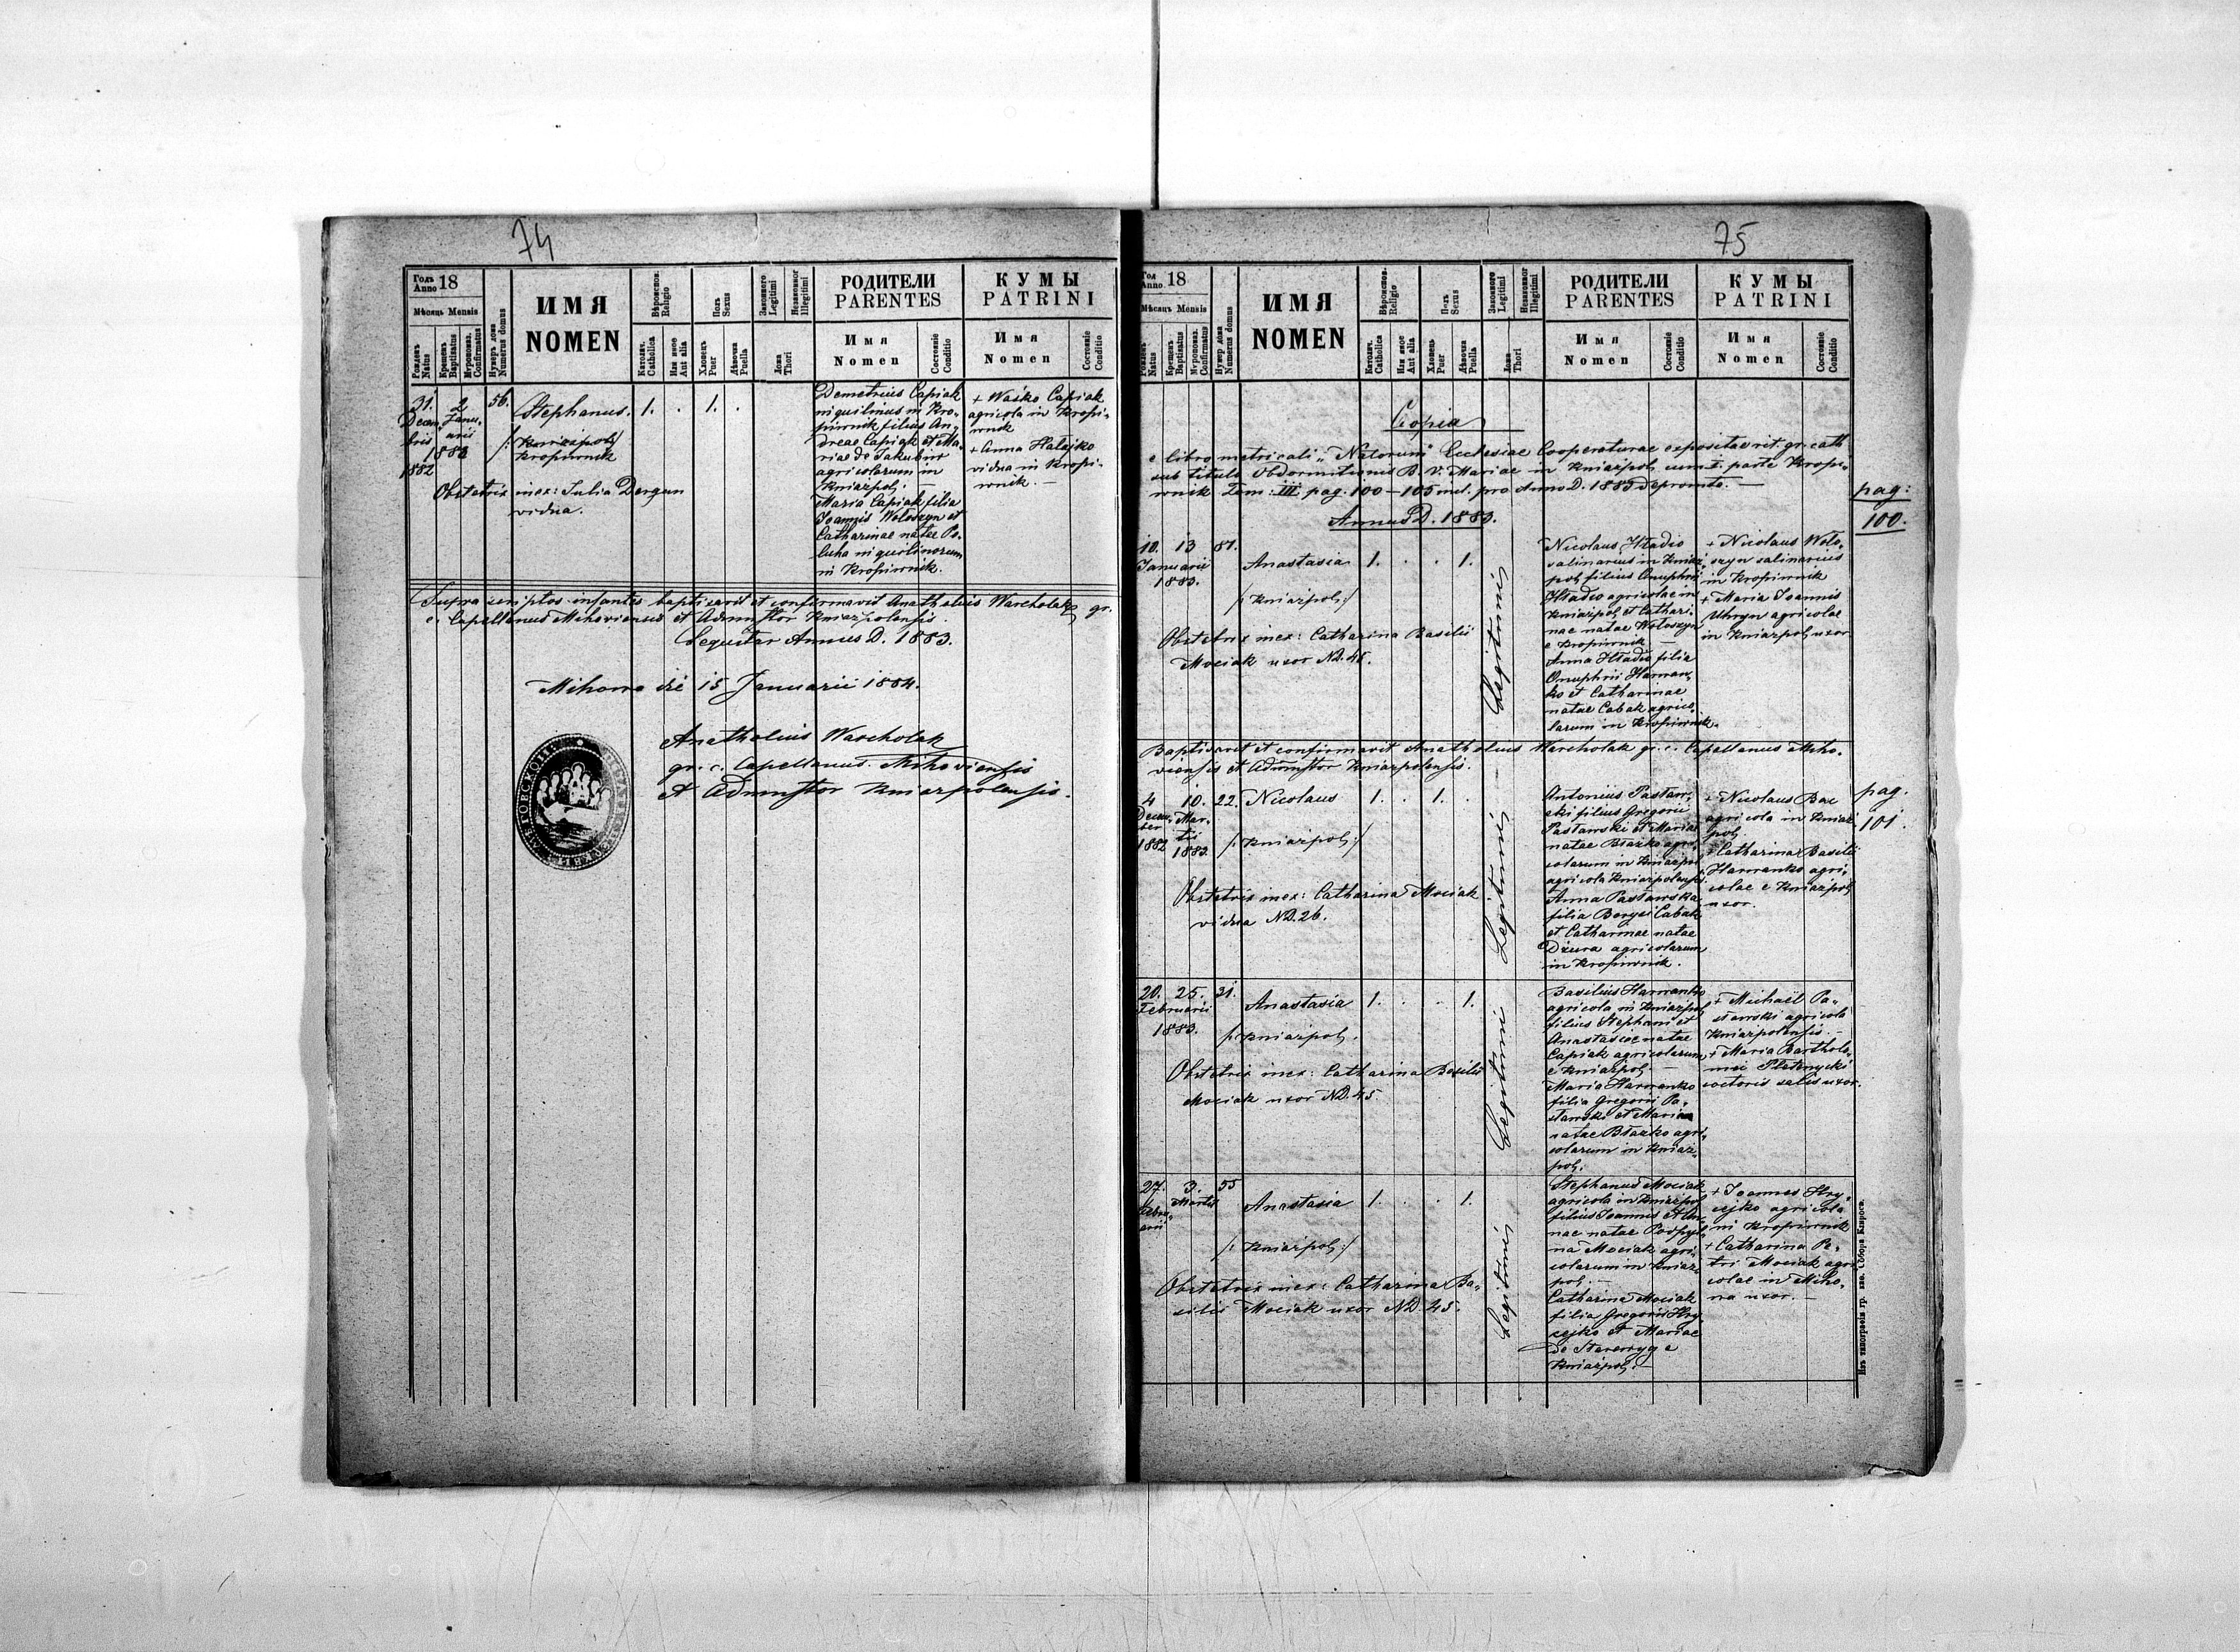 74
Годъ Anno 18
Мѣсяцъ Mensis
Рожденъ Natus
Крещенъ Baptisatus
Мѵропомаз. Confirmatus
Нумеръ дома Numerus domus
ИМЯ
NOMEN
Вѣроиспов. Religio
Католич. Catholica
Или иное Aut alia
Полъ Sexus
Хлопецъ Puer
Дѣвочка Puella
Законного Legitimi
Незаконног Illegitimi
Ложа Thori
РОДИТЕЛИ
PARENTES
Имя
Nomen
Состояніе Conditio
КУМЫ
PATRINI
Имя
Nomen
Состояніе Conditio
31. 2 56. Stephanus. 1. . 1. .
Decem- Janu-
bris arii
1883
1882
Kropiwnik
Obstetrix inex: Julia Dergun
vidua.
Demetrius Capiak
inquilinus in Kro-
piwnik filius An-
dreae Capiak et Ma-
riae de Jakubiw
agricolarum in
Kniaźpol. —
Maria Capiak filia
Joannis Wołoszyn et
Catharinae natae Po-
luha inquilinorum
in Kropiwnik.
+ Waśko Capiak
agricola in Kropi-
wnik
+ Anna Halejko
vidua in Kropi-
wnik. —
Supra scriptos infantes baptisavit et confirmavit Anatholius Warcholak gr.
c. Capellanus Mihoviensis et Adm̃stor Kniaźpolensis.
Sequitur Annus D. 1883.
Mihowa die 15 Januarii 1884.
Anatholius Warcholak
gr. c. Capellanus Mihoviensis
et Adm̃stor Kniaźpolensis.
75
Год Anno 18
Мѣсяцъ Mensis
Рожденъ Natus
Крещенъ Baptisatus
Мѵропомаз. Confirmatus
Нумер дома Numerus domus
ИМЯ
NOMEN
Вѣроиспов. Religio
Католич. Catholica
Или иное Aut alia
Полъ Sexus
Хлопецъ Puer
Дѣвочка Puella
Законного Legitimi
Незаконног Illegitimi
Ложа Thori
РОДИТЕЛИ
PARENTES
Имя
Nomen
Состояніе Conditio
КУМЫ
PATRINI
Имя
Nomen
Состояніе Conditio
Copia
e libro metricali „Natorum" Ecclesiae Cooperaturae expositae rit. gr. cath
sub titulo Obdormitionis B. V. Mariae in Kniaźpol cum I. parte Kropi-
wnik Tom: III pag. 100–105 incl. pro Anno D. 1883 deprompta. —
Annus D. 1883.
pag:
100.
10. 13 87. Anastasia 1. . . 1.
Januarii
1883.
/: Kniaźpol :/
Obstetrix inex: Catharina Basilii
Mociak uxor ND. 45.
Legitimi
Nicolaus Hładio
salinarius in Kniaź-
pol filius Onuphrii
Hładio agricolae in
Kniaźpol et Cathari-
nae natae Wołoszyn
e Kropiwnik —
Anna Hładio filia
Onuphrii Hawran-
ko et Catharinae
natae Cabak agrico-
larum in Kropiwnik.
+ Nicolaus Woło-
szyn salinarius
in Kropiwnik
+ Maria Joannis
Uhryn agricolae
in Kniaźpol uxor
Baptisavit et confirmavit Anatholius Warcholak gr. c. Capellanus Miho-
viensis et Adm̃stor Kniaźpolensis.
pag.
101.
4 10. 22. Nicolaus 1. . 1. .
Decem- Mar-
ber tii
1882 1883.
/: Kniaźpol :/
Obstetrix inex: Catharina Mociak
vidua ND. 26.
Legitimi
Antonius Pastaw-
ski filius Gregorii
Pastawski et Mariae
natae Błażko agri-
colarum in Kniaźpol
agricola Kniaźpolensis
Anna Pastawska
filia Borysi Cabak
et Catharinae natae
Dziura agricolarum
in Kropiwnik.
+ Nicolaus Bac
agricola in Kniaź-
pol.
+ Catharina Basilii
Hawranko agri-
colae e Kniaźpol
uxor.
20. 25. 31. Anastasia 1. . . 1.
Februarii
1883.
/: Kniaźpol.
Obstetrix inex: Catharina Basilii
Mociak uxor ND. 45
Legitimi
Basilius Hawranko
agricola in Kniaźpol
filius Stephani et
Anastasiae natae
Capiak agricolarum
e Kniaźpol —
Maria Hawranko
filia Gregorii Pa-
stawski et Mariae
natae Błażko agri-
colarum in Kniaź-
pol.
+ Michaël Pa-
stawski agricola
Kniaźpolensis. —
+ Maria Bartholo-
maei
coctoris salis uxor.
27. 3. 55 Anastasia 1. . . 1.
Febru- Martii
arii
/: Kniaźpol :/
Obstetrix inex: Catharina Ba-
silii Mociak uxor ND. 45.
Legitimi
Stephanus Mociak
agricola in Kniaźpol
filius Joannis et An-
nae natae
na Mociak agri-
colarum in Kniaź-
pol. —
Catharina Mociak
filia Gregorii Hry-
cejko et Mariae
de
Kniaźpol. —
+ Joannes Hry-
cejko agricola
in Kropiwnik
+ Catharina Pe-
tri Mociak agri-
colae in Miho-
wa uxor. —
Изъ типографіи гр. кте. Собора Клироса.